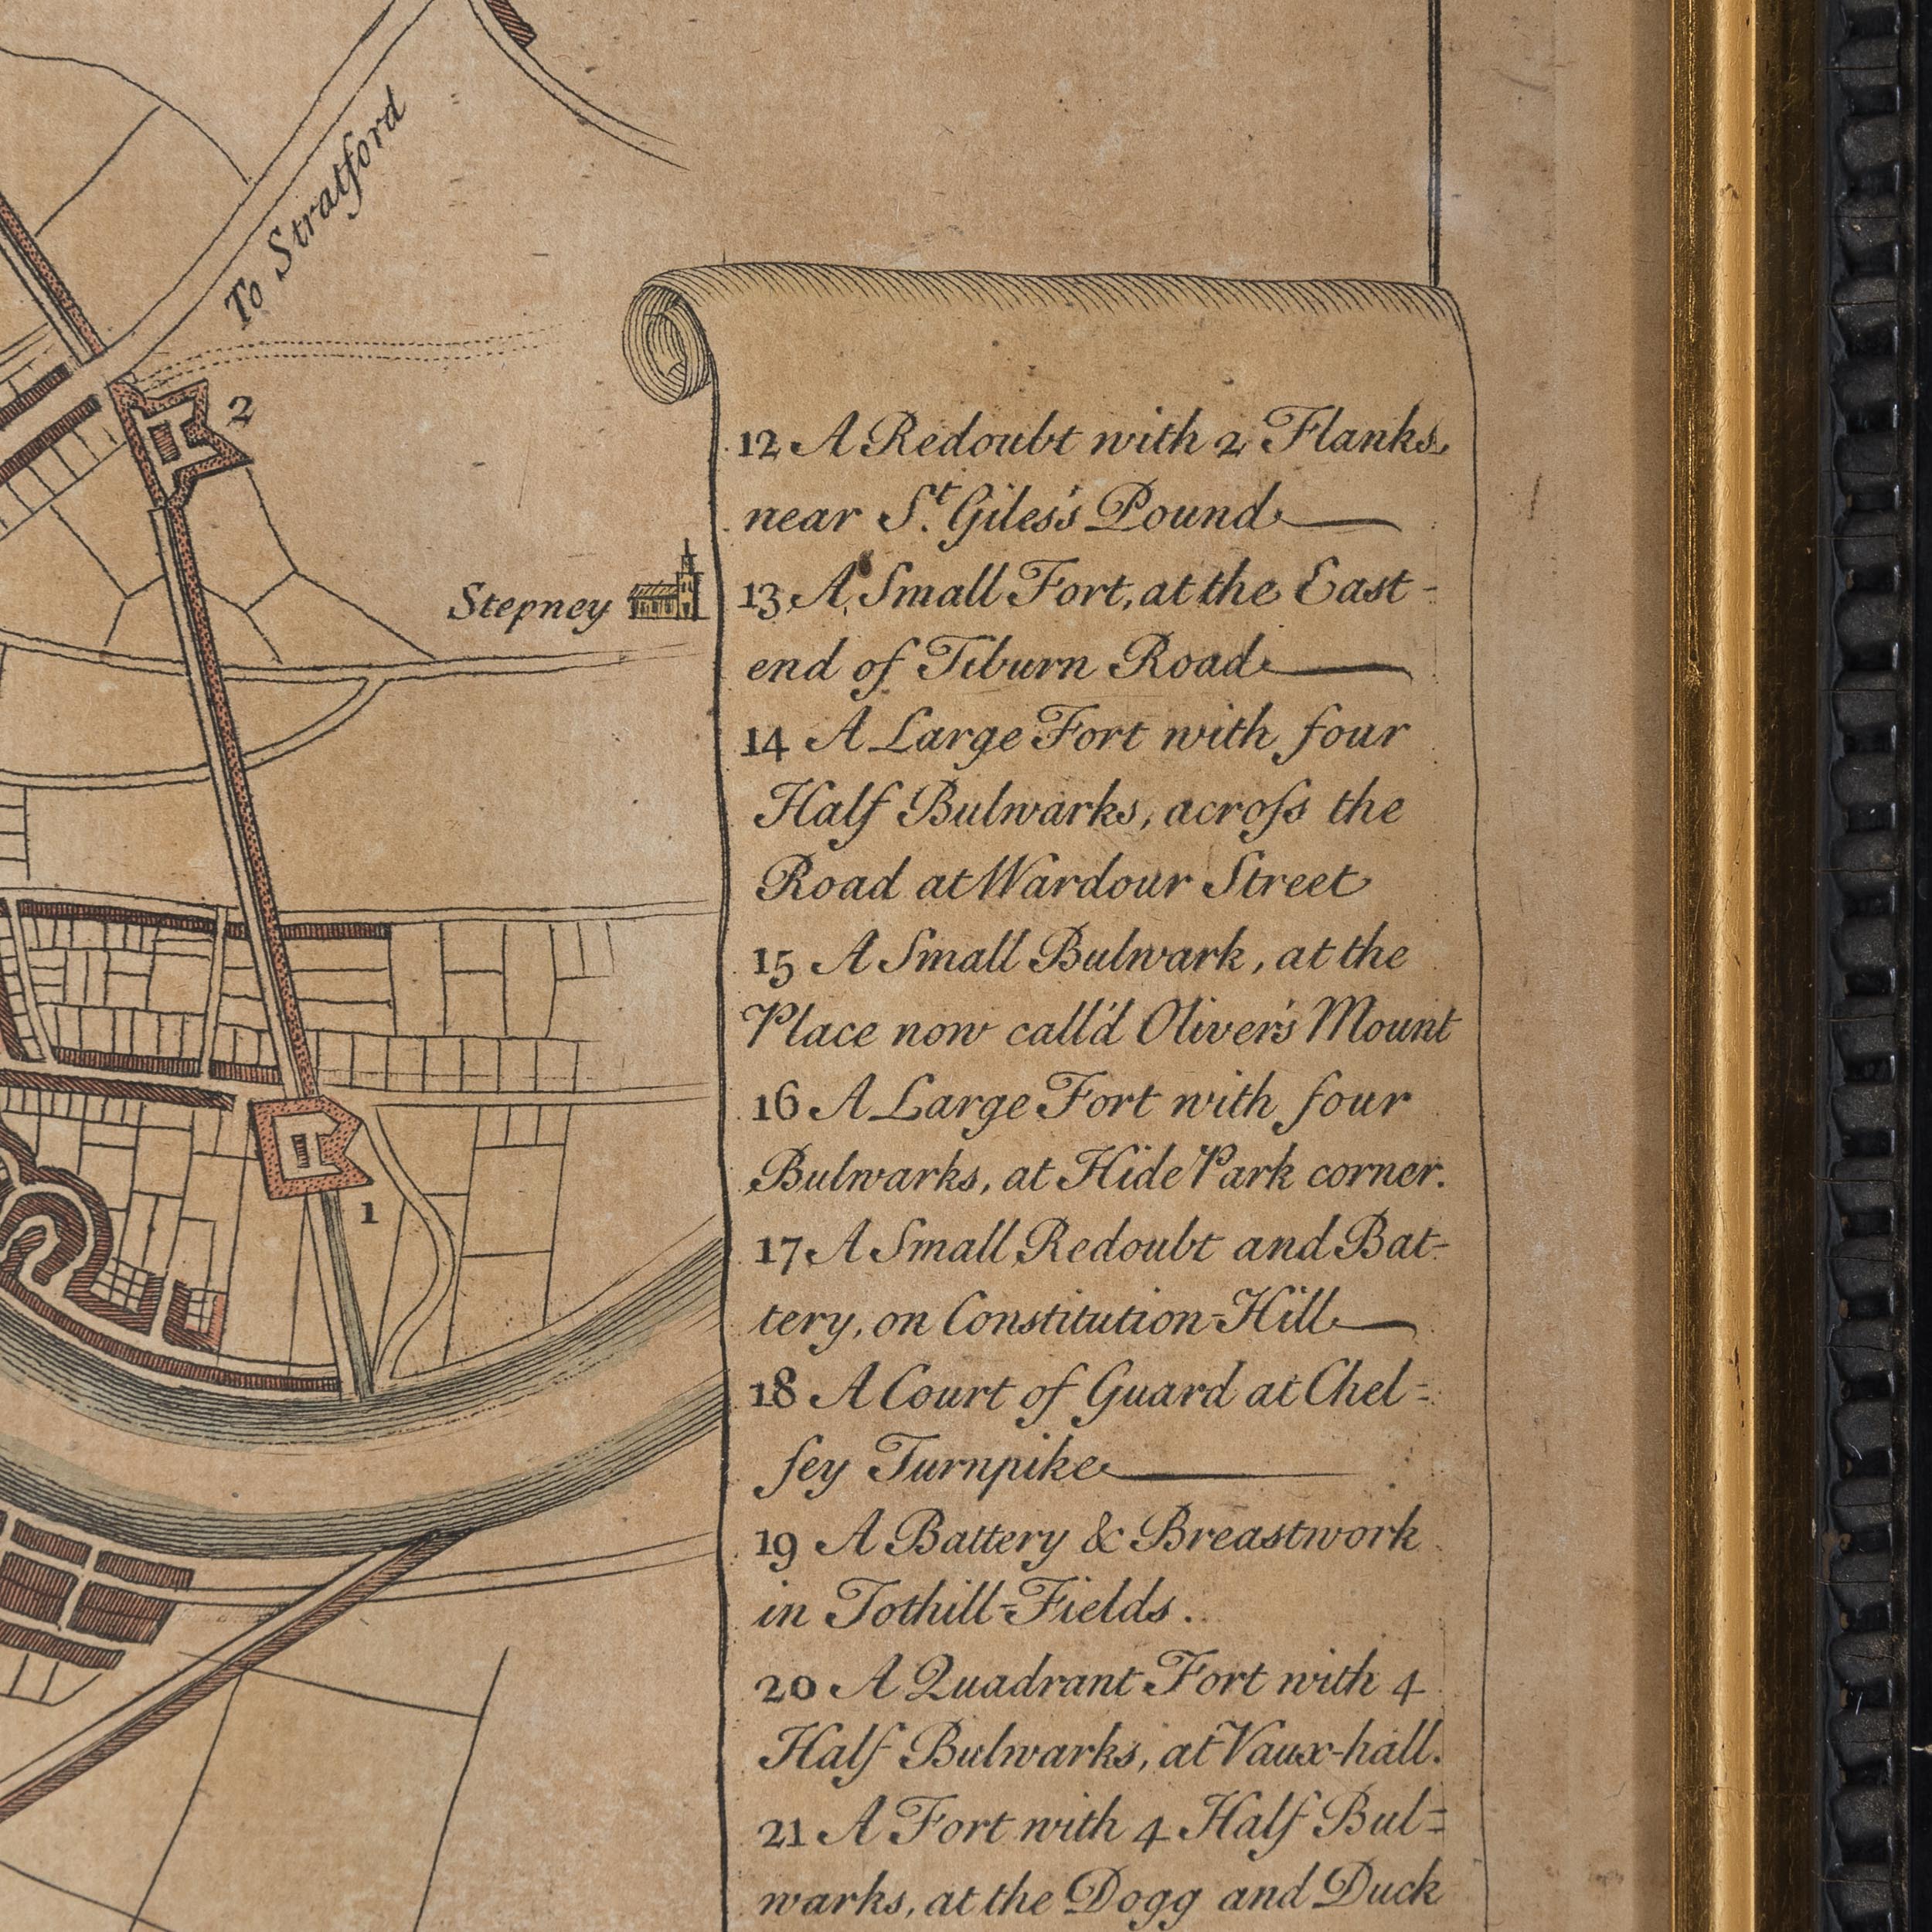 To Stratford
2
Stepney
1
12 A Redoubt with 2 Flanks,
near St. Giles's Pound
13 A Small Fort, at the East-
end of Tiburn Road
14 A Large Fort with four
Half Bulwarks, acroſs the
Road at Wardour Street
15 A Small Bulwark, at the
Place now call'd Oliver's Mount
16 A Large Fort with four
Bulwarks, at Hide Park corner.
17 A Small Redoubt and Bat-
tery, on Constitution-Hill
18 A Court of Guard at Chel=
ſey Turnpike
19 A Battery & Breastwork
in Tothill=Fields.
20 A Quadrant Fort with 4
Half Bulwarks, at Vaux-hall.
21 A Fort with 4 Half Bul=
warks, at the Dogg and Duck